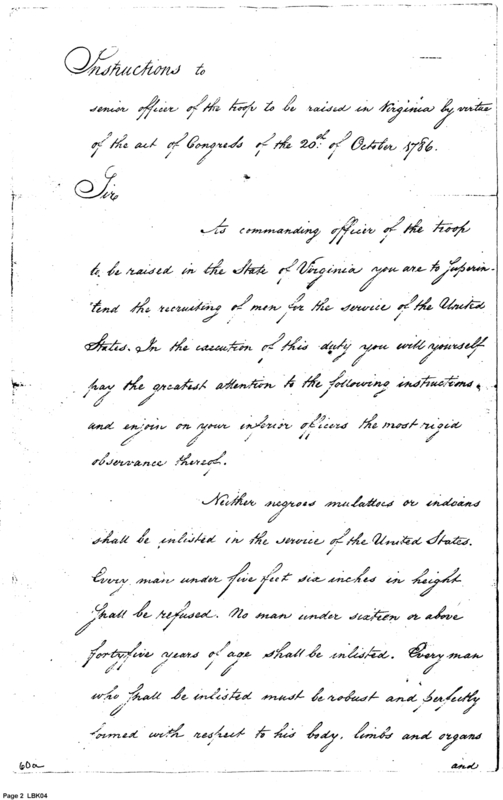 Instructions to
senior officer of the troop to be raised in Virginia by virtue
of the act of Congress of the 20th. of October 1786.
Sir
As commanding officer of the troop
to be raised in the State of Virginia you are to Superin-
tend the recruiting of men for the service of the United
States. In the execution of this duty you will yourself
pay the greatest attention to the following instructions,
and enjoin on your inferior officers the most rigid
observance thereof.
Neither negroes mulattoes or indians
shall be inlisted in the service of the United States.
Every man under five feet six inches in height
shall be refused. No man under sixteen or above
forty five years of age shall be inlisted. Every man
who shall be inlisted must be robust and perfectly
formed with respect to his body, limbs and organs
60a
and
Page 2 LBK04